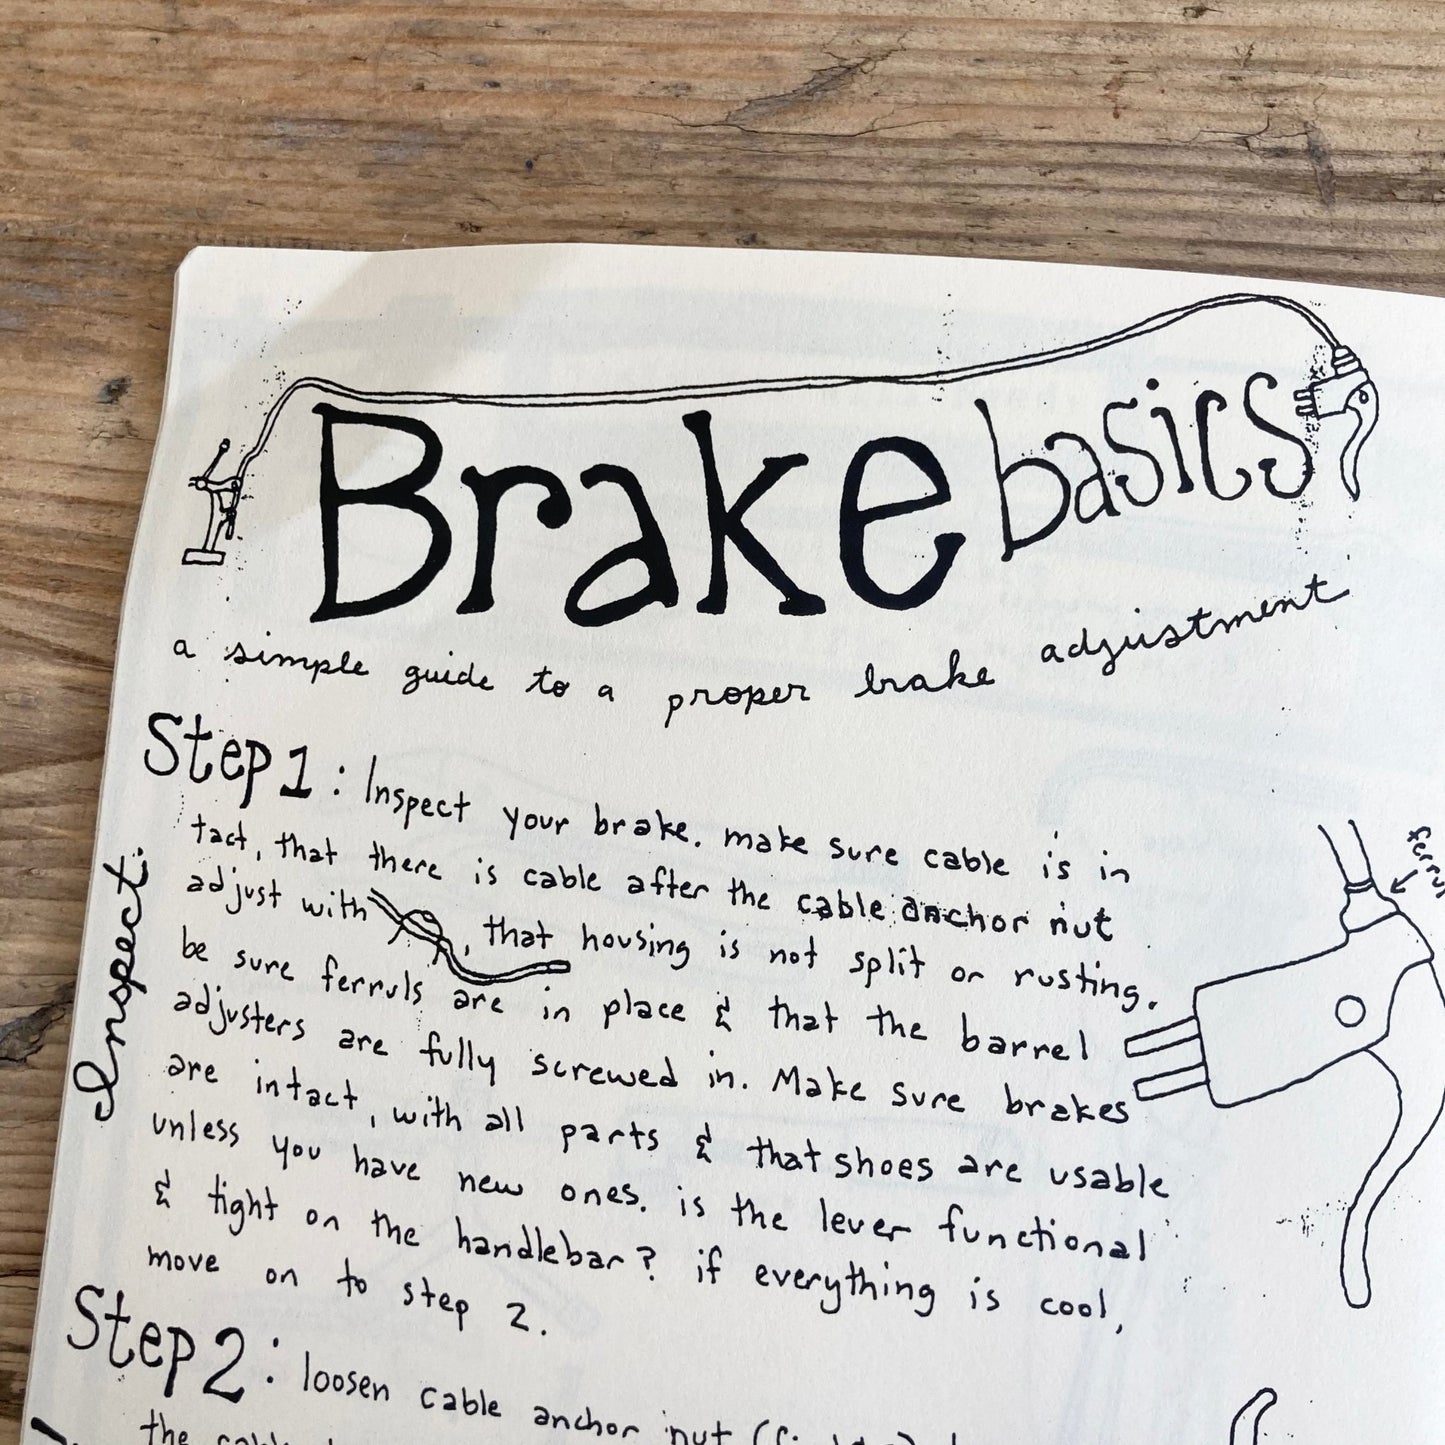 Brake basics
a simple guide to a proper brake adjustment
Step 1: Inspect your brake. make sure cable is in
tact, that there is cable after the cable anchor nut
adjust with, that housing is not split or rusting.
be sure ferruls are in place & that the barrel
adjusters are fully screwed in. Make sure brakes
are intact, with all parts & that shoes are usable
unless you have new ones. is the lever functional
& tight on the handlebar? if everything is cool,
move on to step 2.
Inspect:
Step 2: loosen cable anchor nut
the